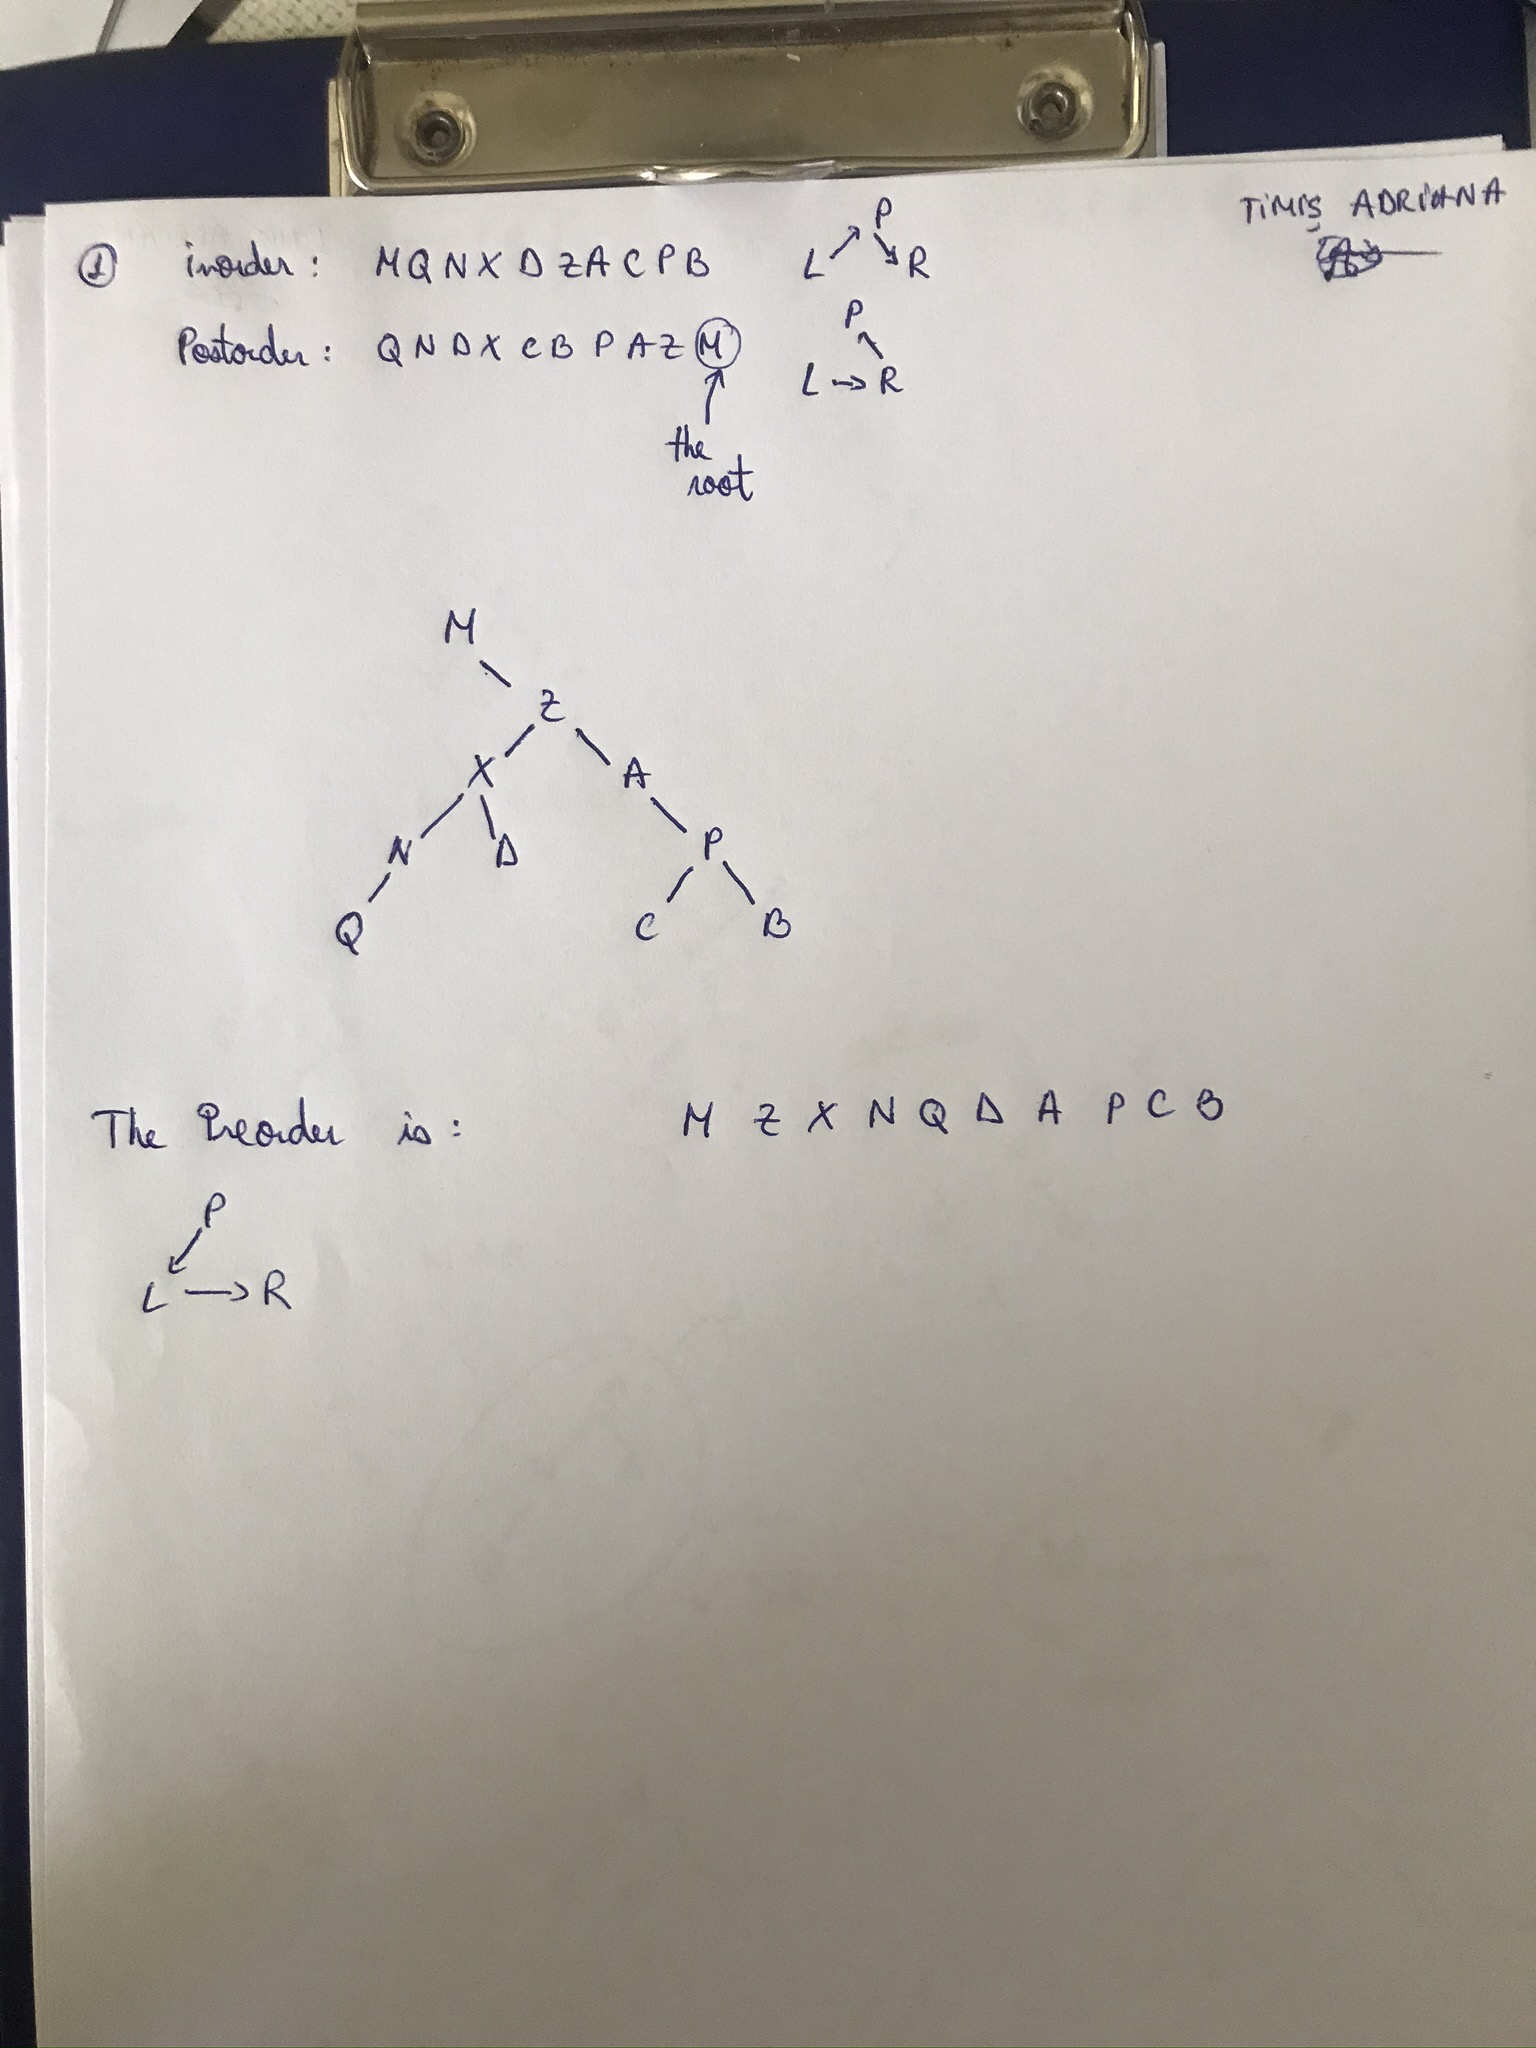 TIMIȘ ADRIANA
① inorder: M Q N X D Z A C P B
L P R
Postorder: Q N D X C B P A Z M
P
L → R
the
root
M
Z
X A
N D P
Q C B
The Preorder is: M Z X N Q D A P C B
P
L → R